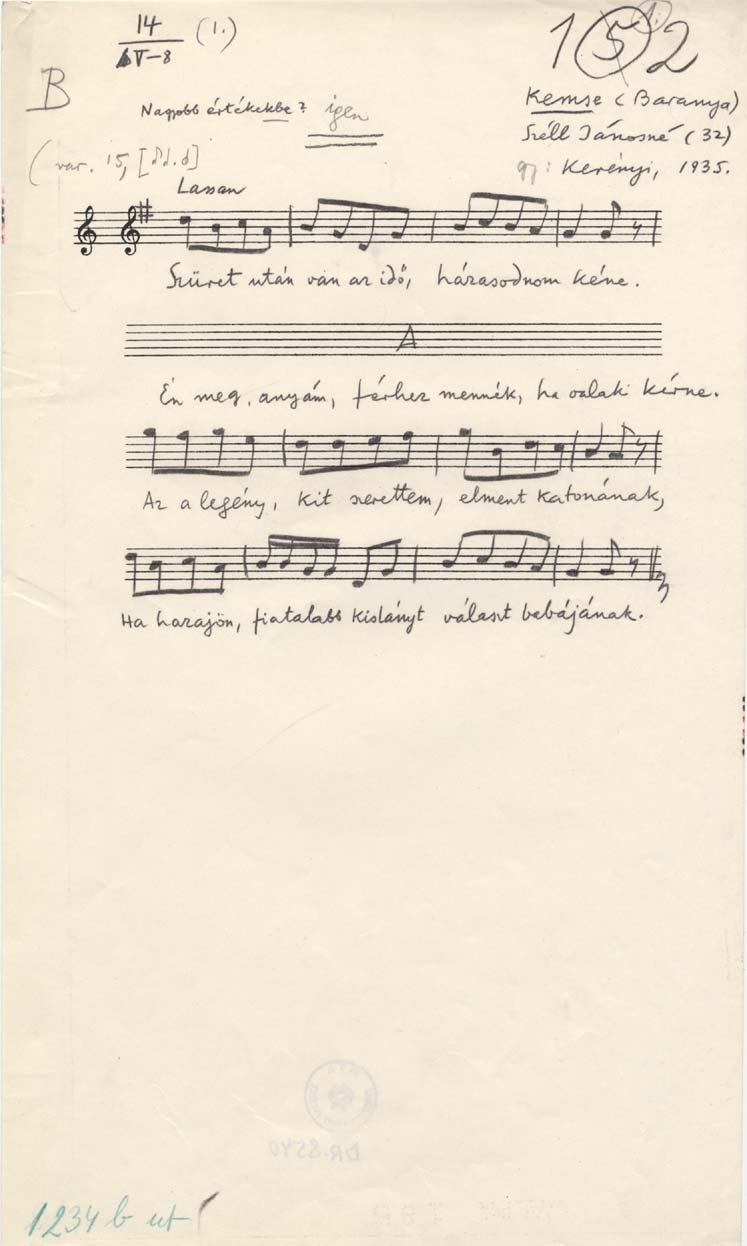 14 (1.)
V-8
152
B
Nagyobb értékekbe? igen
Kemse (Baranya)
Széll Jánosné (32)
gy: Kerényi, 1935.
(var. 15,
Lassan
Szüret után van az idő, házasodnom kéne.
A
Én meg, anyám, férhez mennék, ha valaki kérne.
Az a legény, kit szerettem, elment katonának,
Ha hazajön, fiatalabb kislányt választ babájának.
DR-8540
1234 b ut